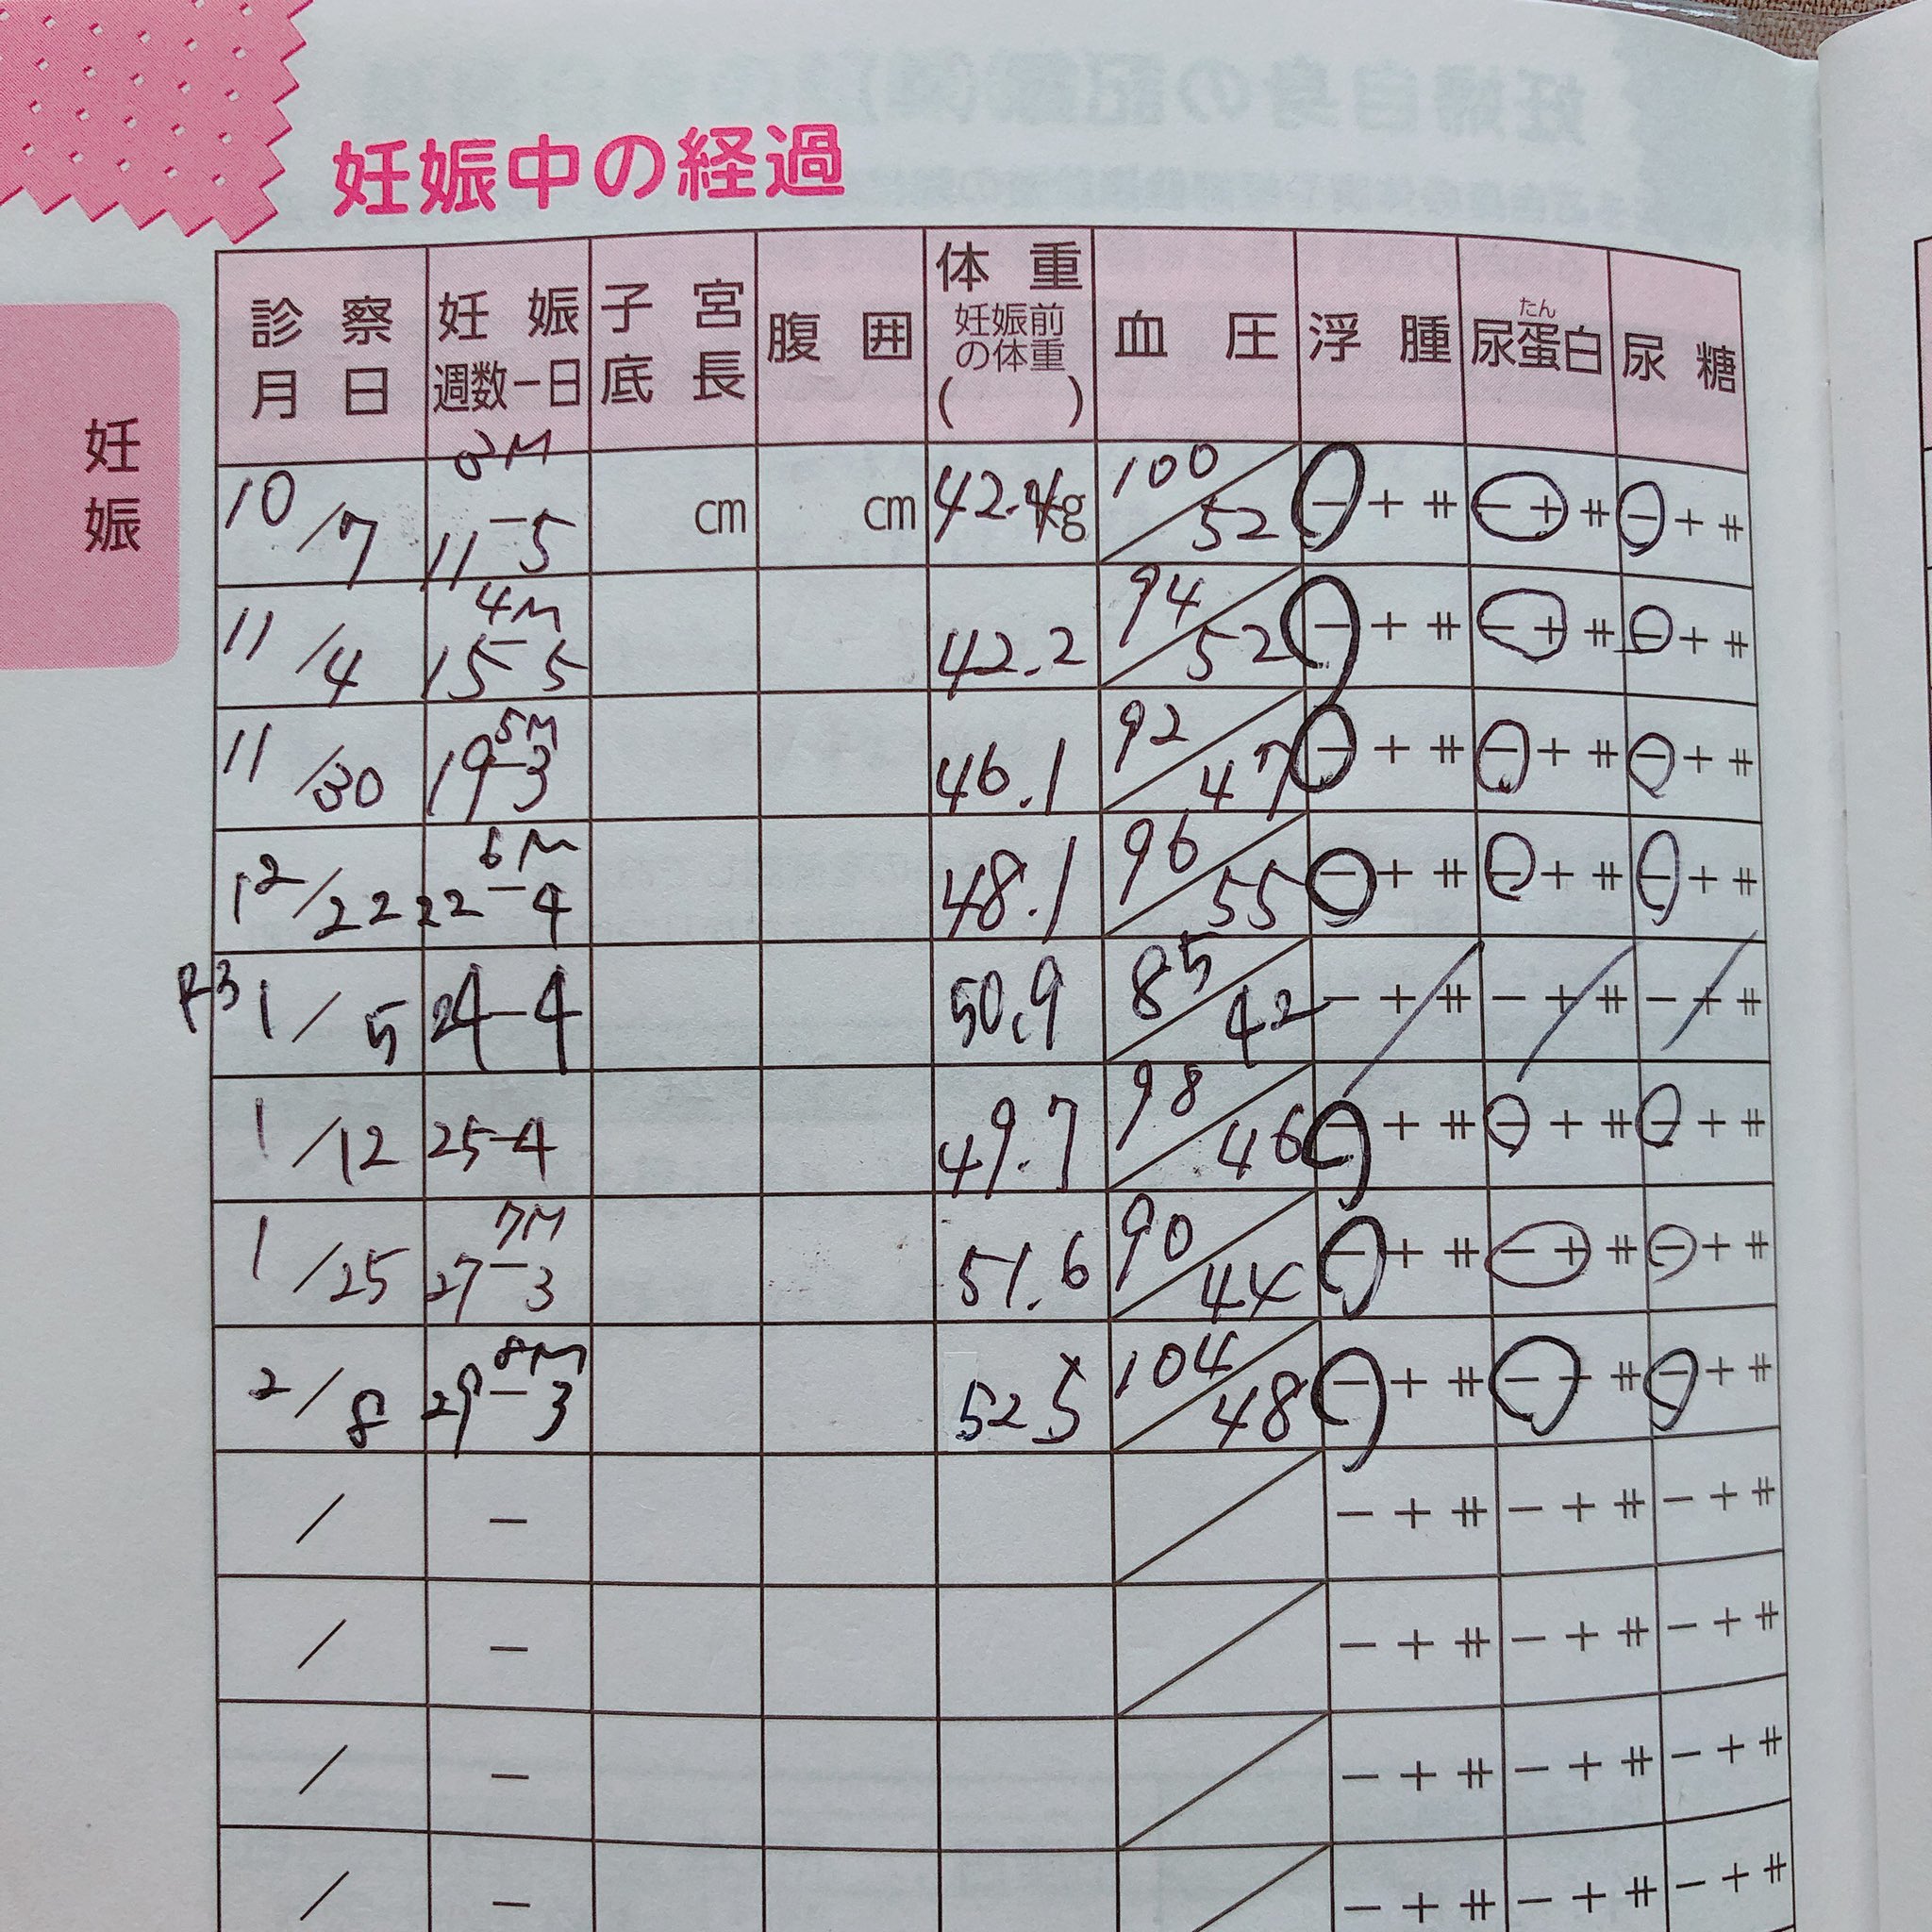 妊娠中の経過
妊娠
診察月日 妊娠週数－日 子宮底長 腹囲 体重 妊娠前の体重 ( ) 血圧 浮腫 尿蛋白 たん 尿糖
10/7 3M 11-5 cm cm 42.4kg 100/52 － ＋ ⧺ － ＋ ⧺ － ＋ ⧺
11/4 4M 15-5 42.2 94/52 － ＋ ⧺ － ＋ ⧺ － ＋ ⧺
11/30 5M 19-3 46.1 92/47 － ＋ ⧺ － ＋ ⧺ － ＋ ⧺
12/22 6M 22-4 48.1 96/55 － ＋ ⧺ － ＋ ⧺ － ＋ ⧺
R3 1/5 24-4 50.9 85/42 － ＋ ⧺ － ＋ ⧺ － ＋ ⧺
1/12 25-4 49.7 98/46 － ＋ ⧺ － ＋ ⧺ － ＋ ⧺
1/25 7M 27-3 51.6 90/44 － ＋ ⧺ － ＋ ⧺ － ＋ ⧺
2/8 8M 29-3 52.5 104/48 － ＋ ⧺ － ＋ ⧺ － ＋ ⧺
/ － / － ＋ ⧺ － ＋ ⧺ － ＋ ⧺
/ － / － ＋ ⧺ － ＋ ⧺ － ＋ ⧺
/ － / － ＋ ⧺ － ＋ ⧺ － ＋ ⧺
/ － / － ＋ ⧺ － ＋ ⧺ － ＋ ⧺